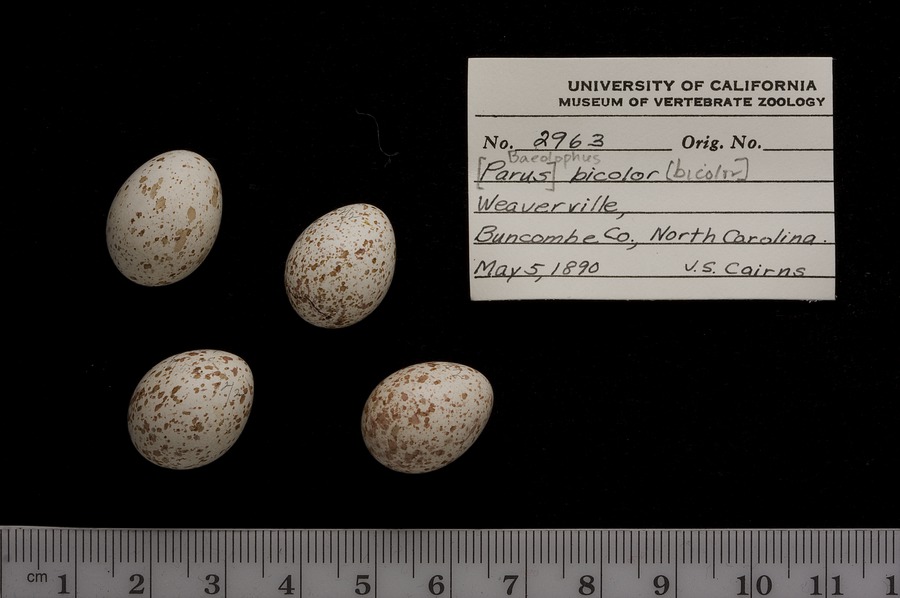 UNIVERSITY OF CALIFORNIA
MUSEUM OF VERTEBRATE ZOOLOGY
No. 2963 Orig. No.
Baeolophus
[Parus] bicolor [bicolor]
Weaverville,
Buncombe Co., North Carolina.
May 5, 1890 J.S. Cairns
cm 1 2 3 4 5 6 7 8 9 10 11 1